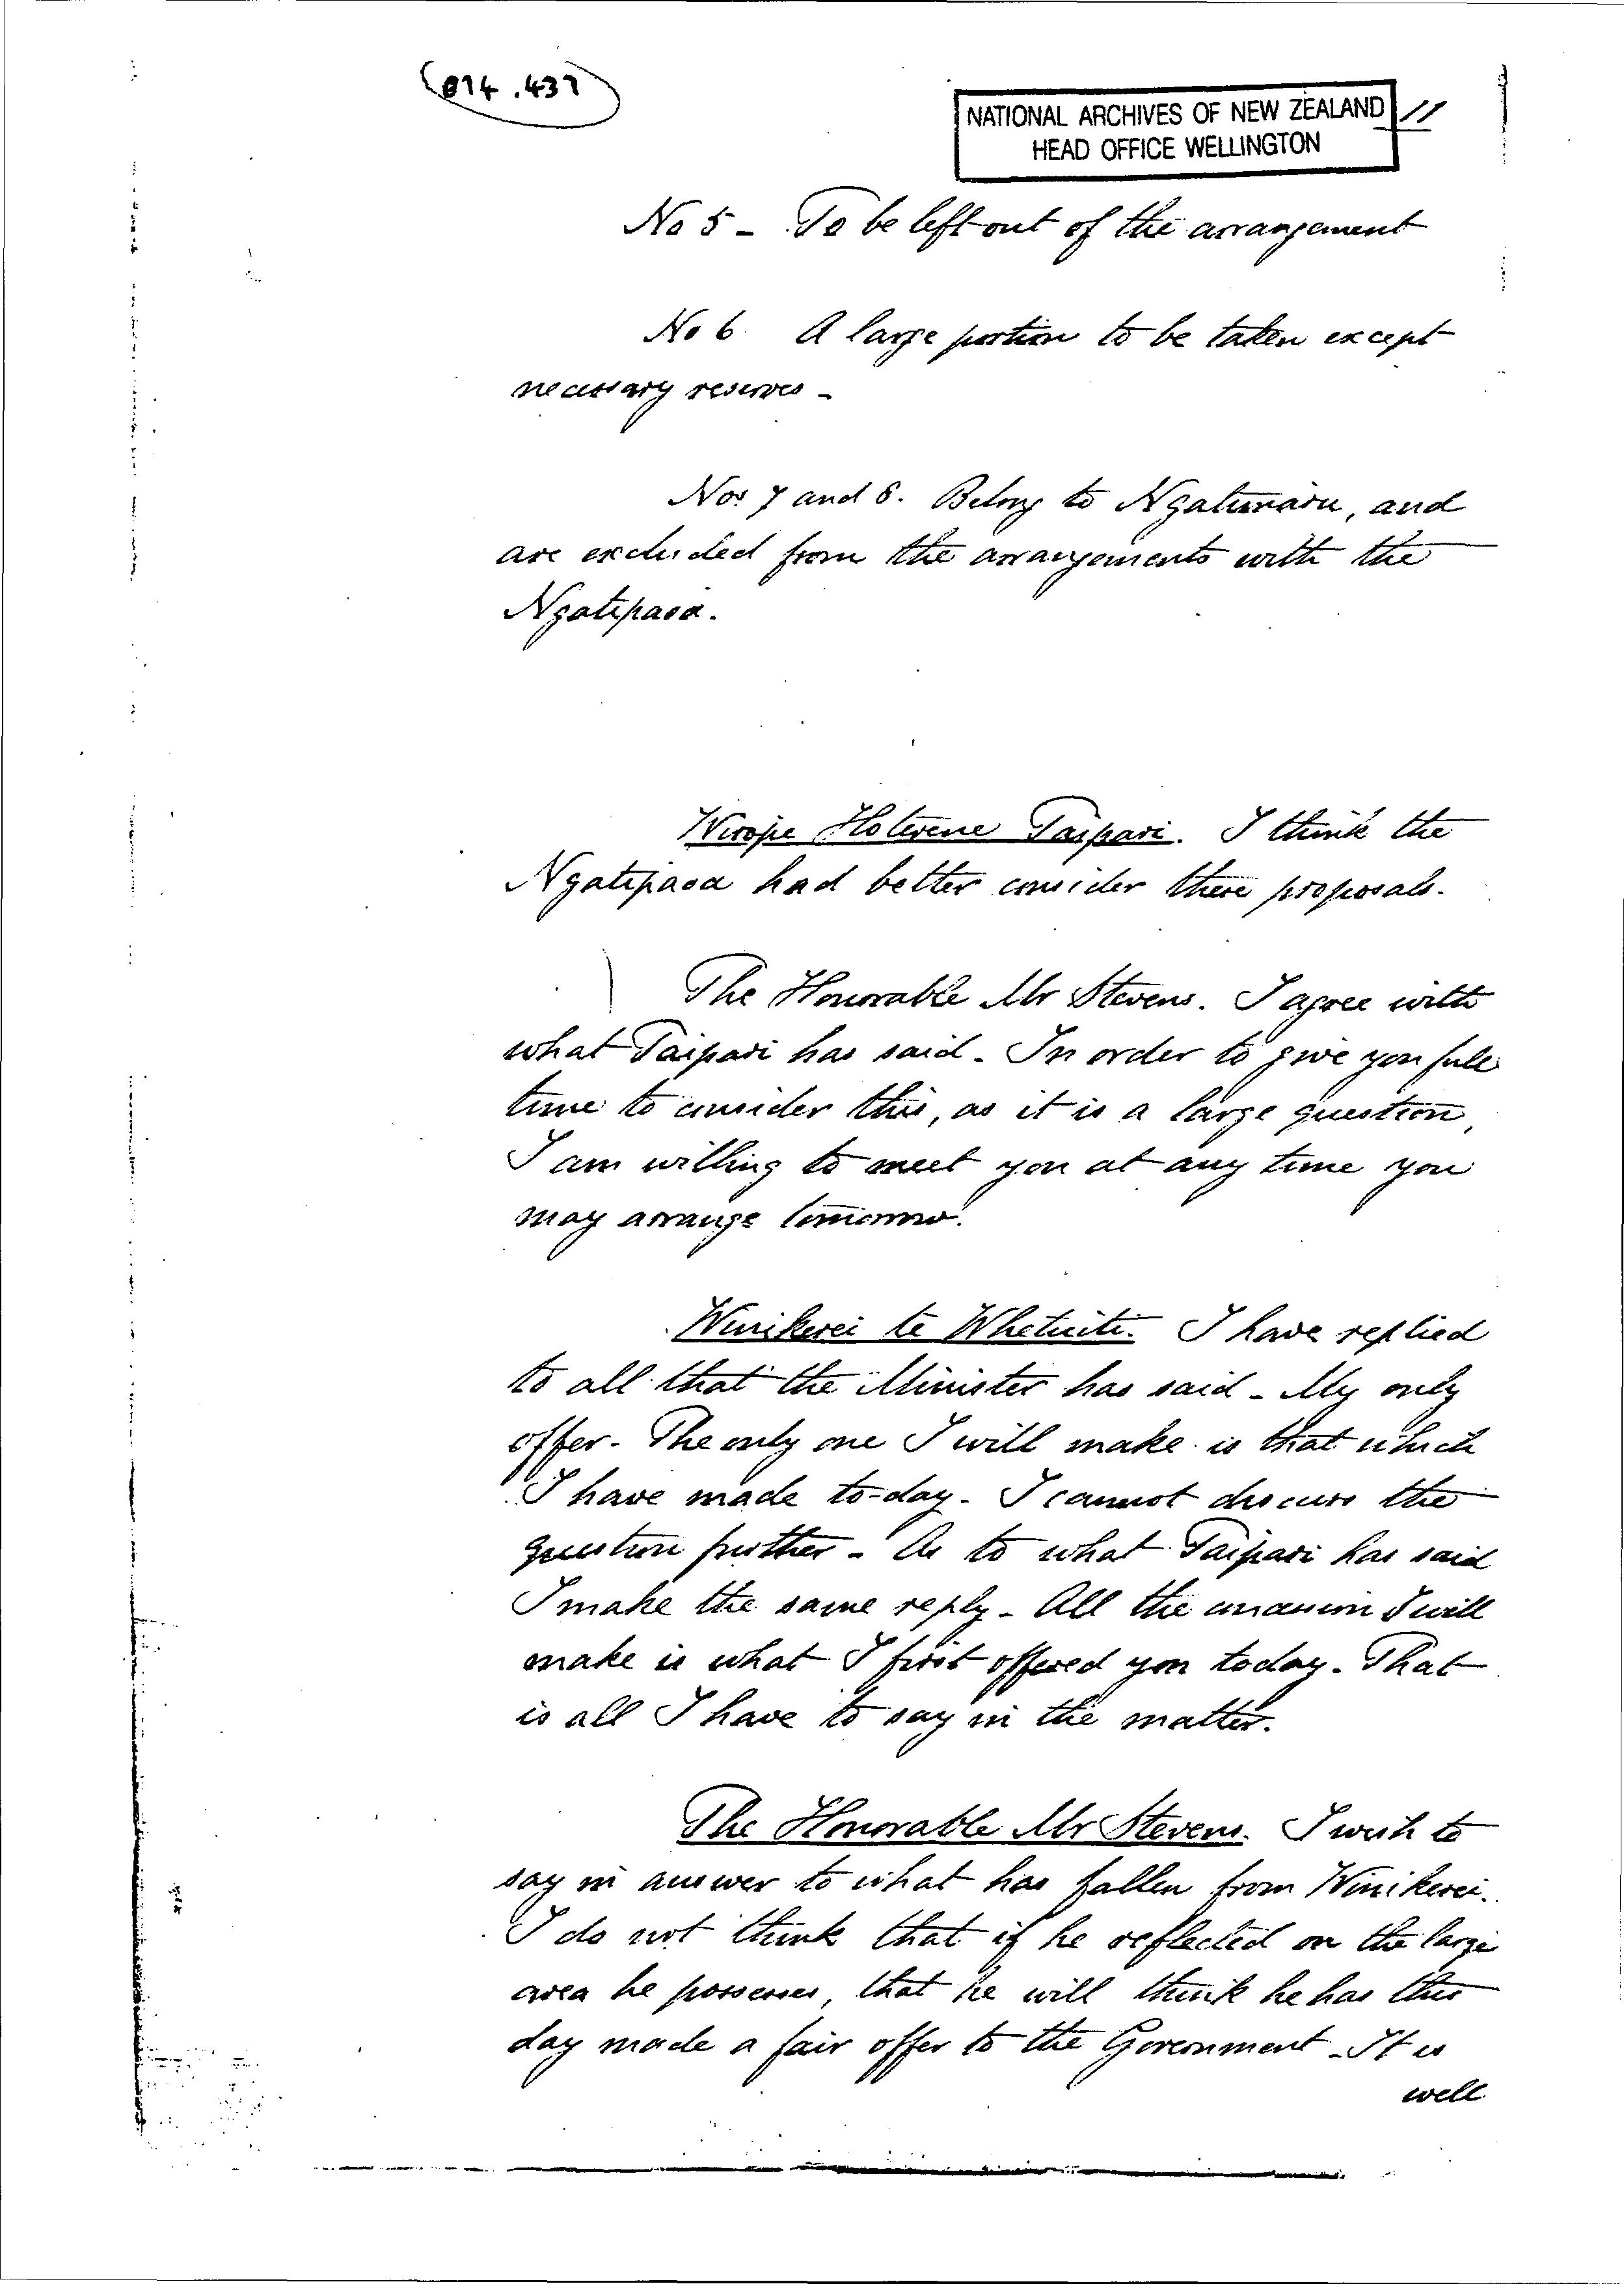 814.437
NATIONAL ARCHIVES OF NEW ZEALAND 11
HEAD OFFICE WELLINGTON
No 5 - To be left out of the arrangement
No 6 A large portion to be taken except
necessary reserves -
Nos 7 and 8. Belong to Ngatimaru, and
are excluded from the arrangements with the
Ngatipaoa.
Wirope Hoterene Taipari. I think the
Ngatipaoa had better consider these proposals.
The Honorable Mr Stevens. I agree with
what Taipari has said - In order to give you full
time to consider this, as it is a large question,
I am willing to meet you at any time you
may arrange tomorrow.
Winikerei te Whetuiti. I have replied
to all that the Minister has said - My only
offer - The only one I will make is that which
I have made to-day - I cannot discuss the
question further - As to what Taipari has said
I make the same reply - All the concession I will
make is what I first offered you today - That
is all I have to say in the matter.
The Honorable Mr Stevens. I wish to
say in answer to what has fallen from Winikerei.
I do not think that if he reflected on the large
area he possesses, that he will think he has this
day made a fair offer to the Government - It is
well